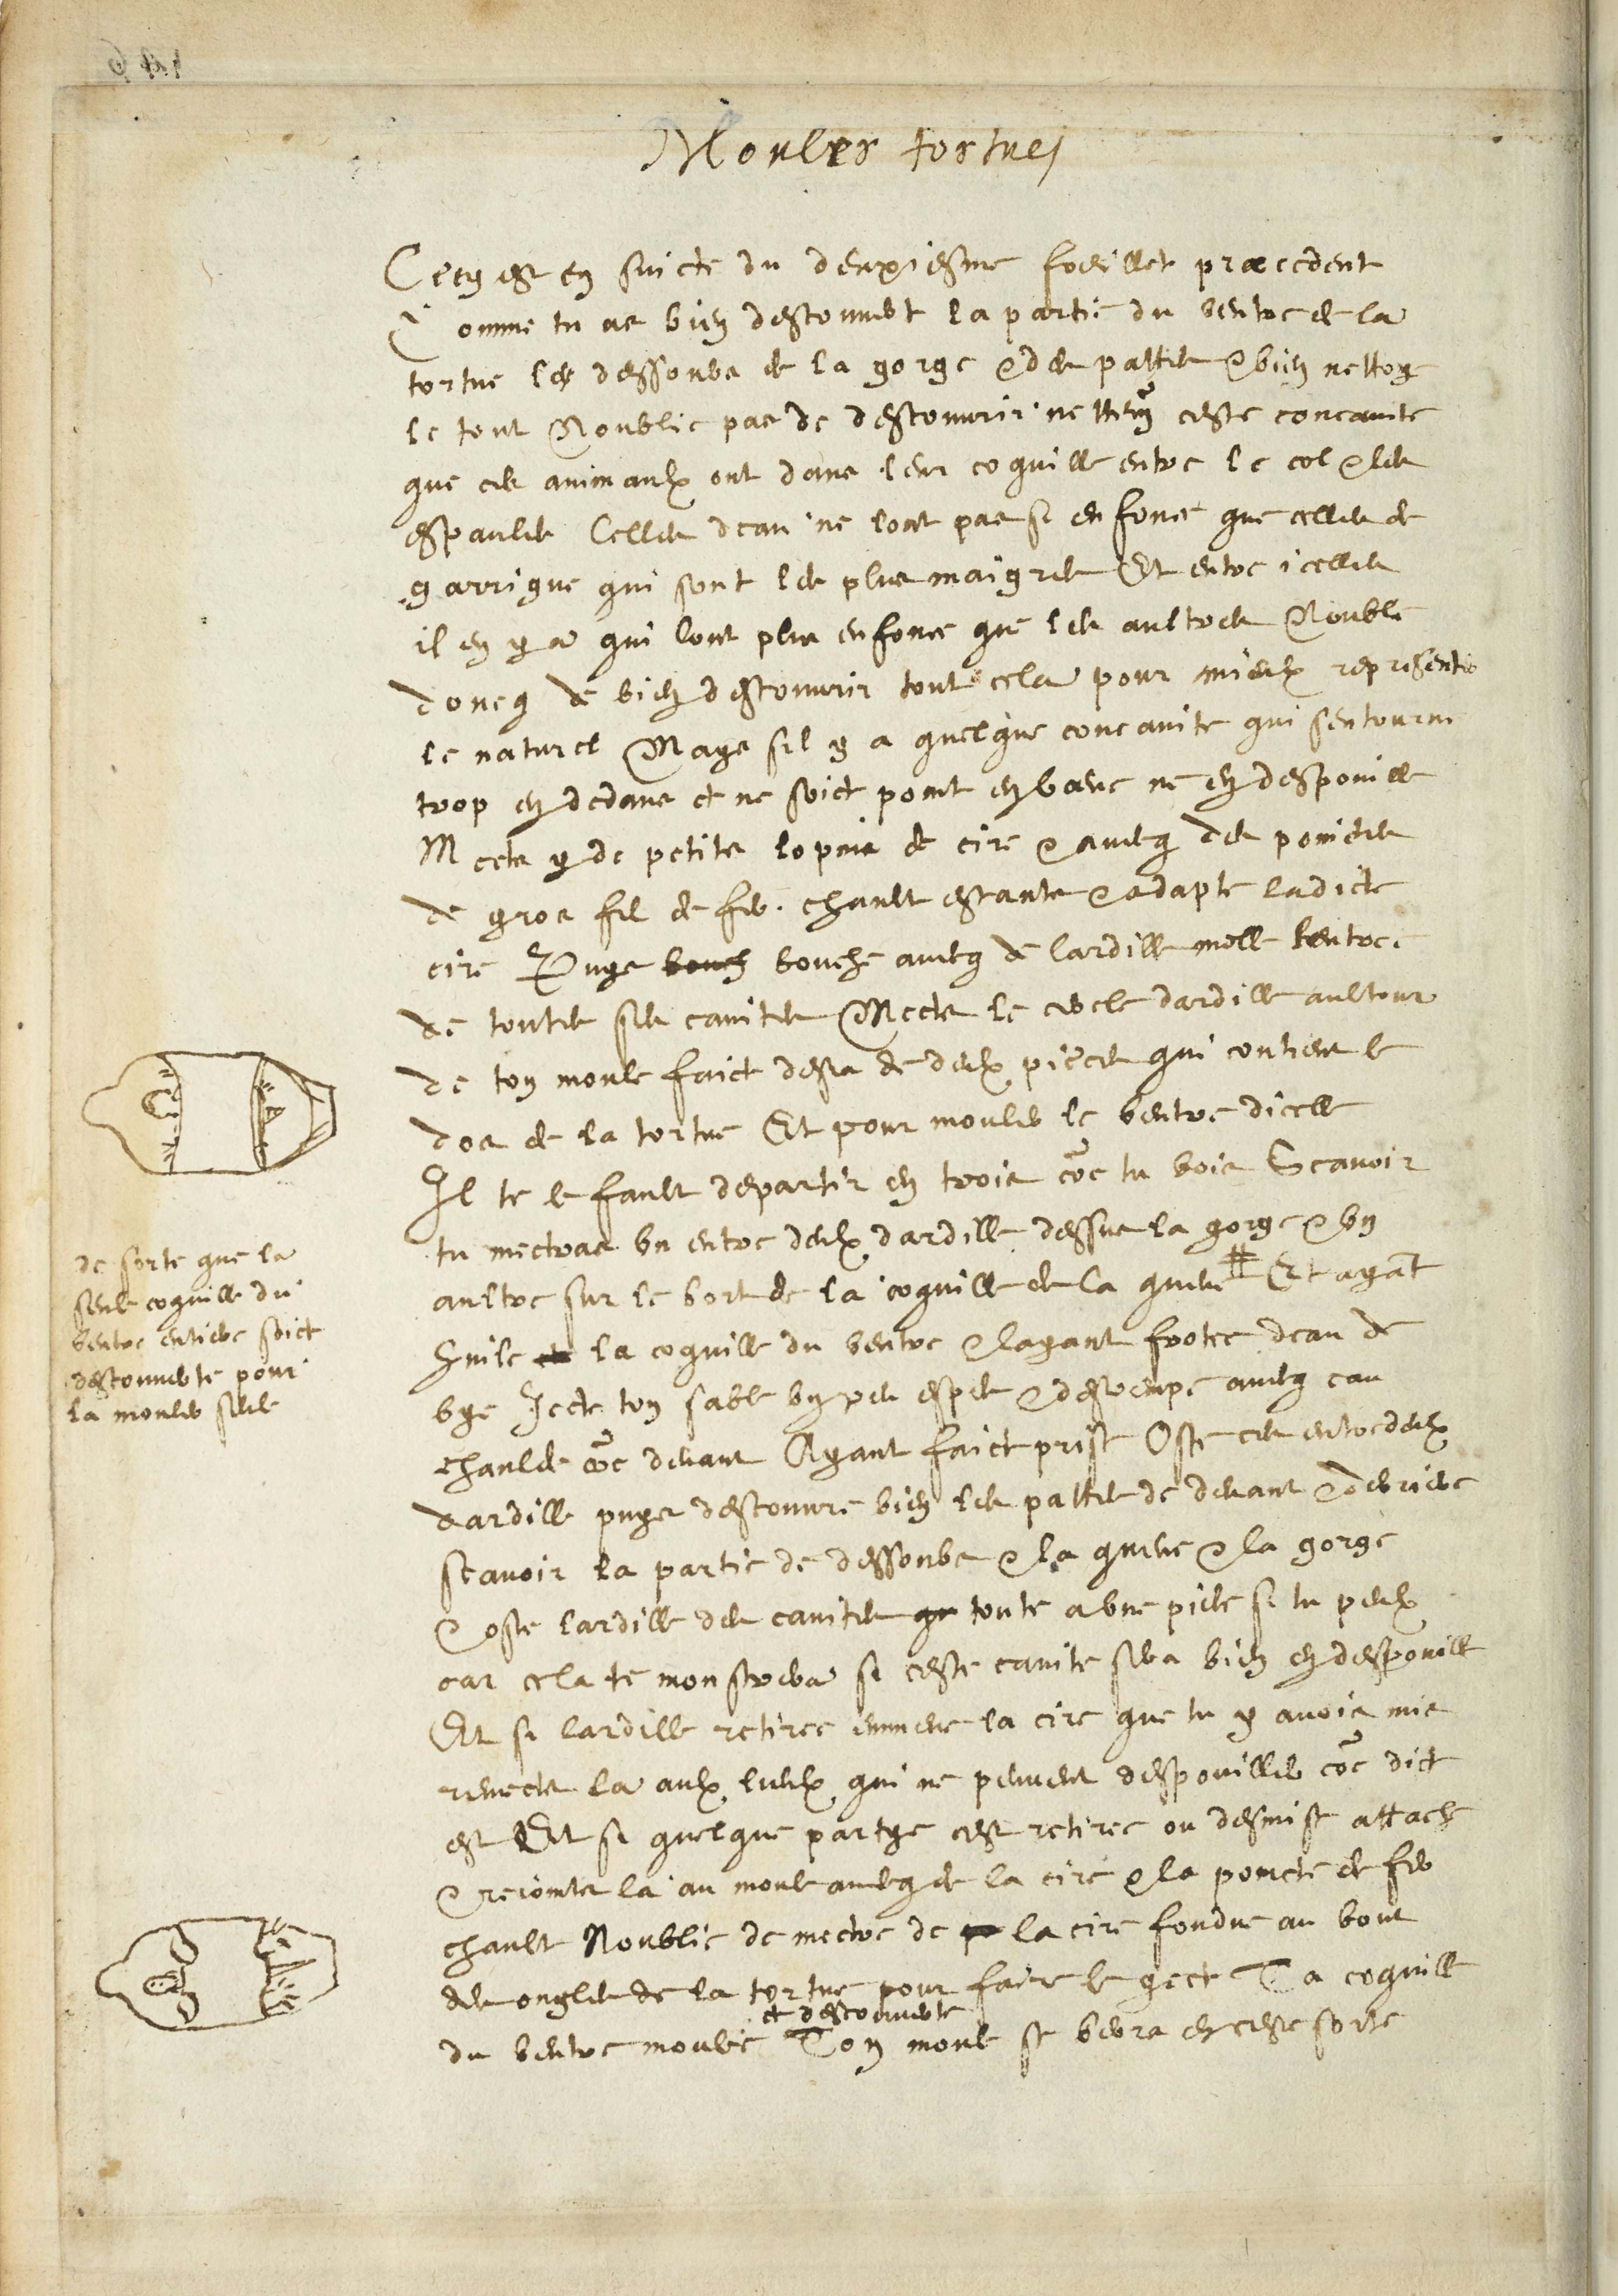 Moules tortues
Cecy est en suicte du deuxiesme foeillet præcedent
Comme tu as bien descouvert la partie du ventre de la
tortue les dessoubs de la gorge & des pattes & bien nettoye
le tout Noublie pas de descouvrir nettem{ent} ceste concavite
que ces animaulx ont dans leur coquille entre le col & les
espaules Celles deau ne lont pas si enfonce que celles de
garrigue qui sont les plus maigres Et entre icelles
il en y a qui lont plus enfonce que les aultres Noublie
doncq de bien descouvrir tout cela pour mieulx representer
le naturel Mays sil y a quelque concavite qui sentourne
trop en dedans et ne soict point en bave ne en despouille
Mects y de petits lopins de cire & avecq des poinctes
de gros fil de fer chault estants & adapte ladicte
cire Puys bouch bouche avecq de lardille molle lentree
de toutes ses cavites Mects le cercle dardille aultour
de ton moule faict desja de deulx pieces qui contient le
dos de la tortue Et pour mouler le ventre dicelle
Il te le fault departir en trois co{mm}e tu vois Scavoir
tu mectras un entre deulx dardille dessus la gorge & un
aultre sur le bort de la coquille de la queue # Et ayant
huile et la coquille du ventre & layant frotee deau de
vye Jecte ton sable un peu espes & destrempe avecq eau
chaulde co{mm}e devant Ayant faict prise Oste ces entredeulx
dardille puys descouvre bien les pattes de devant & derriere
scavoir la partie de dessoubs & la queue & la gorge
& oste lardille des cavites qu toute a une piece si tu peulx
car cela te monstrera si ceste cavite sera bien en despouille
Et si lardille retiree emmene la cire que tu y avois mis
remects la aulx lieulx qui ne peuvent despouiller co{mm}e dict
est Et si quelque partye cest retiree ou desmise attache
& rejoincts la au moule avecq de la cire & la poincte de fer
chault Noublie de mectre de p la cire fondue au bout
des ongles de la tortue pour faire le gect La coquille
et descouverte
du ventre moulee Ton moule se verra en ceste sorte
de sorte que la
seule coquille du
ventre entiere soict
descouverte pour
la mouler seule